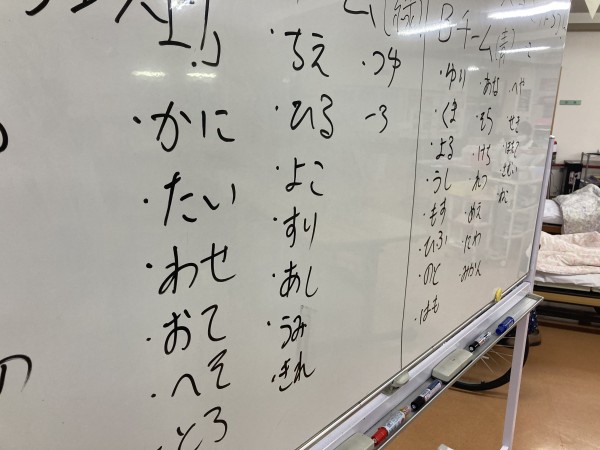 ム(緑)
・かに
・たい
・わせ
・おて
・へそ
・とろ
・ちえ
・ひる
・よこ
・すり
・あし
・うみ
・きれ
・つゆ
Bチーム(青)
・ゆり
・くま
・よる
・うし
・もす
・ひふ
・のと
・はも
・あな
・もち
・けち
・ねつ
・めえ
・にわ
・みかん
・へや
・せき